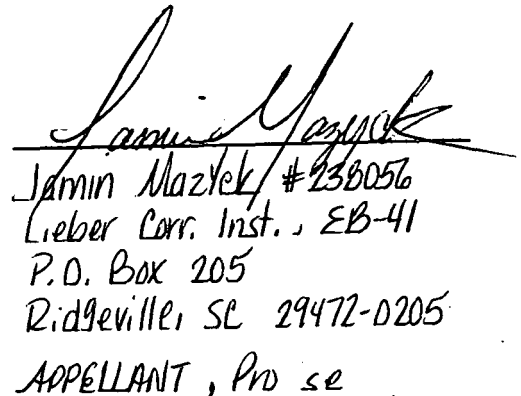 Jamin Mazyck
Jamin Mazyck #238056
Lieber Corr. Inst., EB-41
P.O. Box 205
Ridgeville, SC 29472-0205
APPELLANT, Pro se